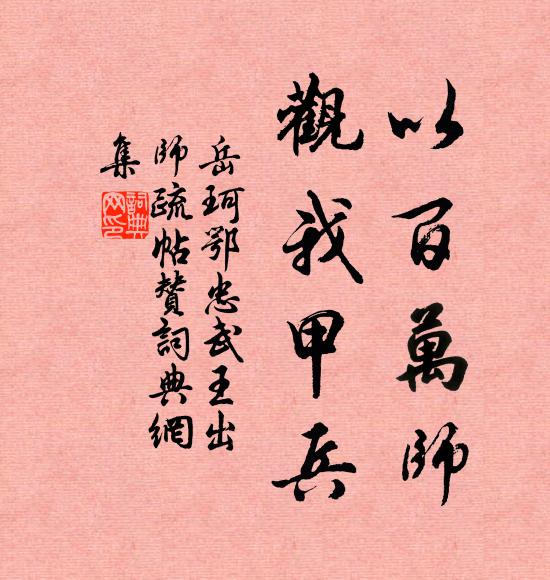 以百萬師
觀我甲兵
岳珂鄂忠武王出
師疏帖贊詞典網
集
詞典
网印